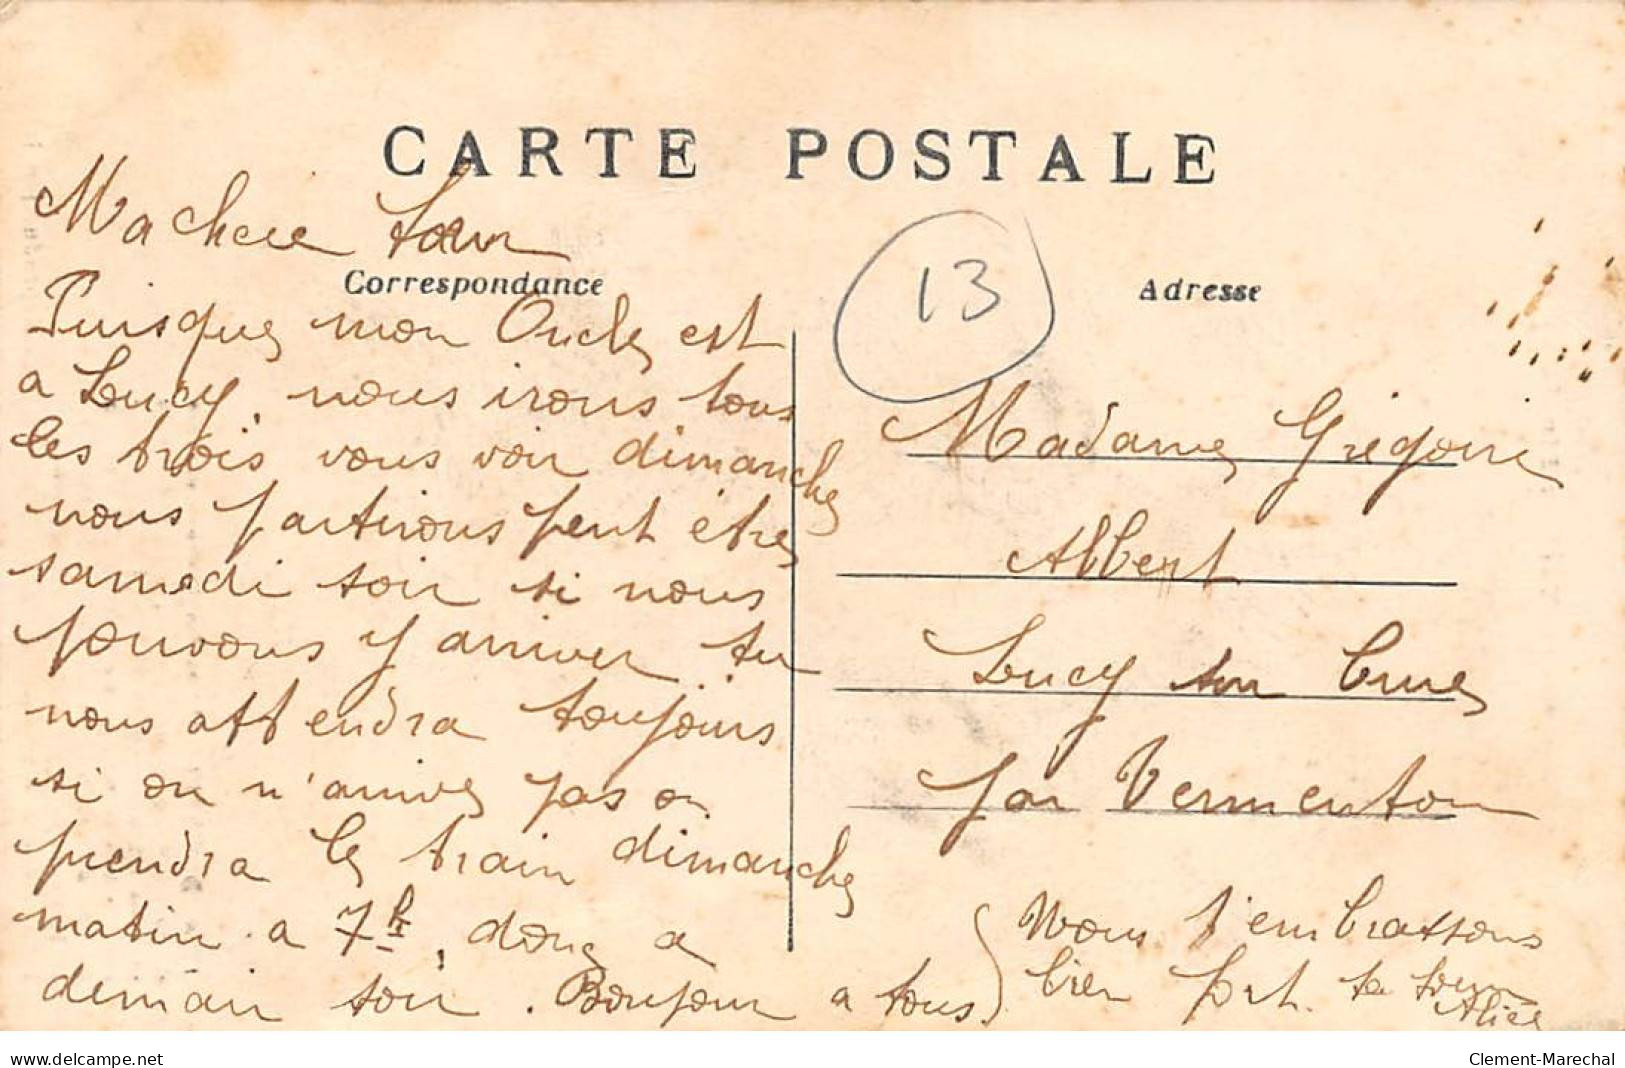 CARTE POSTALE
Ma chere Sœur
Correspondance
Puisque mon Oncle est
a Lucy, nous irons tous
les trois vous voir dimanche
nous partirons peut être
samedi soir si nous
pouvons y arriver tu
nous attendra toujours
si on n'arrive pas on
prendra le train dimanche
matin a 7h, donc a
demain soir. Bonjour a tous
13
Adresse
Madame Grégoire
Albert
Lucy sur Cure
par Vermenton
Nous t'embrassons
bien fort. ta sœur
Alice
www.delcampe.net
Clement-Marechal